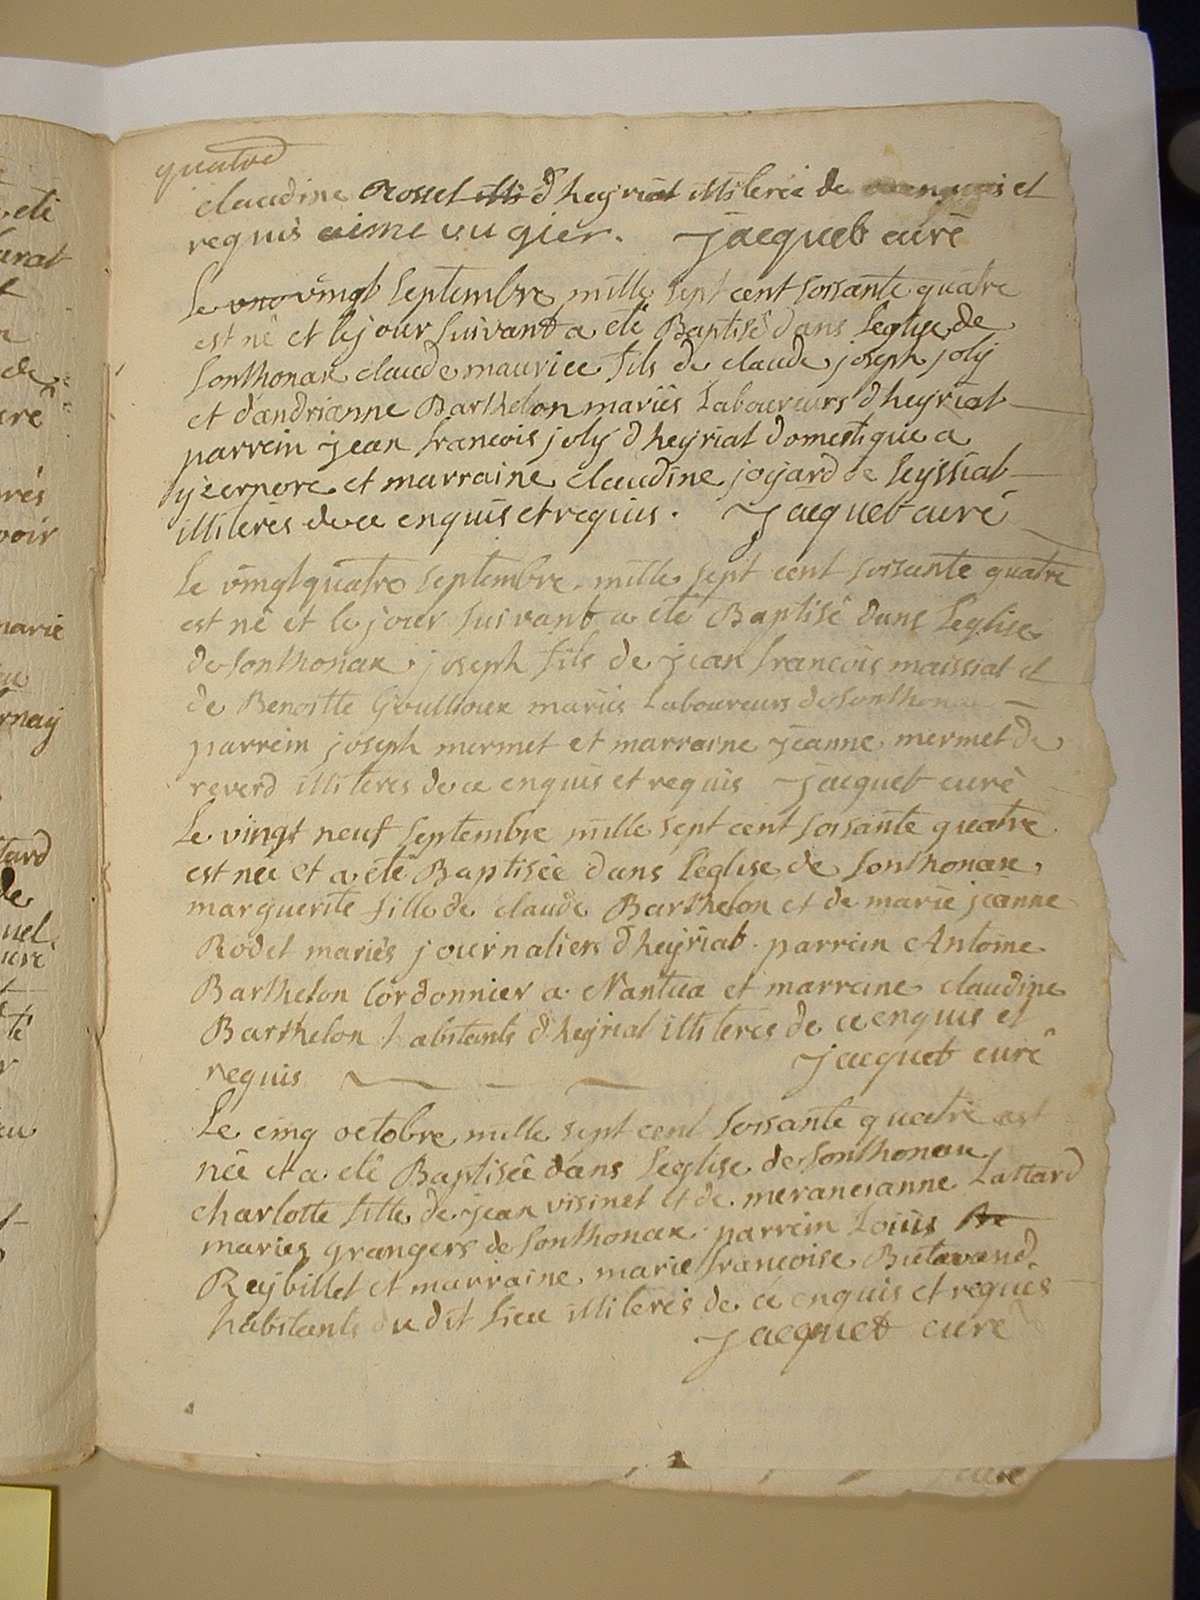 quatre
claudine Rossel d'heyriat illiterée de ce enquis et
requis aime vugier. Jacquet curé
Le vingt septembre mille sept cent soisante quatre
est né et le jour suivant a eté Baptisé dans l'eglise de
sonthonax claude maurice fils de claude joseph joly
et d'andrianne Barthelon mariés Laboureurs d'heyriat
parrein jean francois joly d'heyriat domestique a
yzernore et marraine claudine joyard de leyssiat
illiterés de ce enquis et requis. Jacquet curé
Le vingt quatre septembre mille sept cent soisante quatre
est né et le jour suivant a eté Baptisé dans l'eglise
de sonthonax joseph fils de jean francois maissiat et
de Benoitte Goullioux mariés Laboureurs de sonthonax
parrein joseph mermet et marraine jeanne mermet de
reverd illiteres de ce enquis et requis Jacquet curé
Le vingt neuf septembre mille sept cent soisante quatre
est neé et a eté Baptisée dans l'eglise de sonthonax
marguerite fille de claude Barthelon et de marie jeanne
Rodet mariés journaliers d'heyriat parrein Antoine
Barthelon Cordonnier a Nantua et marreine claudine
Barthelon habitants d'heyriat illiteres de ce enquis et
requis Jacquet curé
Le cinq octobre mille sept cent soisante quatre est
neé et a eté Baptisée dans l'eglise de sonthonax
charlotte fille de jean visinet et de Lattard
mariés grangers de sonthonax parrein Loüis
Reybillet et marraine marie francoise Butavand
habitants du dit lieu illiterés de ce enquis et requis
Jacquet curé